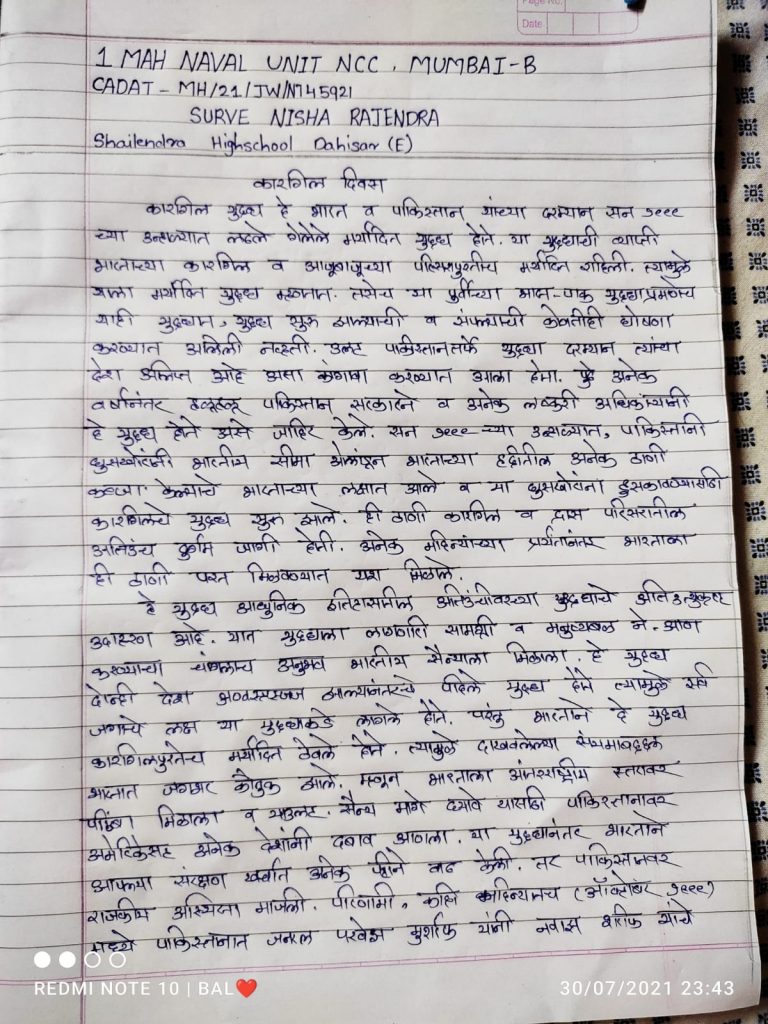 Page No.
Date
1 MAH NAVAL UNIT NCC. MUMBAI-B
CADAT - MH/21/JW/N745921
SURVE NISHA RAJENDRA
Shailendra Highschool Dahisar (E)
कारगिल दिवस
कारगिल युद्ध हे भारत व पाकिस्तान यांच्या दरम्यान सन १९९९
च्या उन्हाळ्यात लढले गेलेले मर्यादित युद्ध होते. या युद्धाची व्याप्ती
भारताच्या कारगिल व आजूबाजूच्या परिसरापुरतीच मर्यादित राहिली. त्यामुळे
याला मर्यादित युद्ध म्हणतात. तसेच या पूर्वीच्या भारत-पाक युद्धाप्रमाणेच
याही युद्धात, युद्ध सुरु झाल्याची व संपल्याची कोणतीही घोषणा
करण्यात आलेली नव्हती. उलट पाकिस्तानतर्फे युद्धा दरम्यान त्यांचा
देश अलिप्त आहे असा कांगावा करण्यात आला होता. अनेक
वर्षानंतर पाकिस्तान सरकारने व अनेक लष्करी अधिकाऱ्यांनी
हे युद्ध होते असे जाहिर केले. सन १९९९ च्या उन्हाळ्यात, पाकिस्तानी
घुसखोरांनी भारतीय सीमा ओलांडून भारताच्या हद्दीतील अनेक ठाणी
कब्जा केल्याचे भारताच्या लक्षात आले व या घुसखोरांना हुसकावण्यासाठी
कारगिलचे युद्ध सुरु झाले. ही ठाणी कारगिल व द्रास परिसरातील
अतिउंच दुर्गम जागी होती. अनेक महिन्यांच्या प्रयत्नानंतर भारताला
ही ठाणी परत मिळवण्यात यश मिळाले.
हे युद्ध आधुनिक इतिहासातील अतिउंचीवरच्या युद्धाचे अति उत्कृष्ट
उदाहरण आहे. यात युद्धाला लागणारी सामग्री व मनुष्यबळ ने-आण
करण्याचा चांगलाच अनुभव भारतीय सैन्याला मिळाला. हे युद्ध
दोन्ही देश अण्वस्त्रसज्ज झाल्यानंतरचे पहिले युद्ध होते त्यामुळे सर्व
जगाचे लक्ष या युद्धाकडे लागले होते. परंतु भारताने हे युद्ध
कारगिलपुरतेच मर्यादित ठेवले होते. त्यामुळे दाखवलेल्या संयमाबद्दल
भारतात जगभर कौतुक झाले. म्हणून भारताला आंतरराष्ट्रीय स्तरावर
पाठिंबा मिळाला व सैन्य मागे घ्यावे यासाठी पाकिस्तानावर
अमेरिकेसह अनेक देशांनी दबाव आणला. या युद्धानंतर भारताने
आपल्या संरक्षण खर्चात अनेक पटीने वाढ केली. तर पाकिस्तानवर
राजकीय अस्थिरता माजली. परिणामी, काही महिन्यातच (ऑक्टोबर १९९९)
मध्ये पाकिस्तानात जनरल परवेझ मुशर्रफ यांनी नवाझ शरीफ यांचे
REDMI NOTE 10 | BAL❤
30/07/2021 23:43